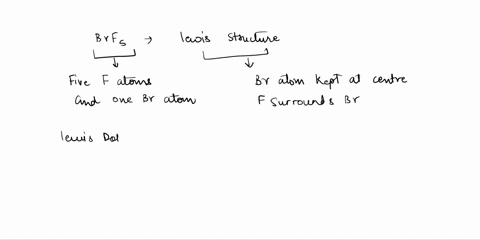 BrF5 → lewis Structure
Five F atoms and one Br atom
Br atom kept at centre
F surrounds Br
lewis Dot